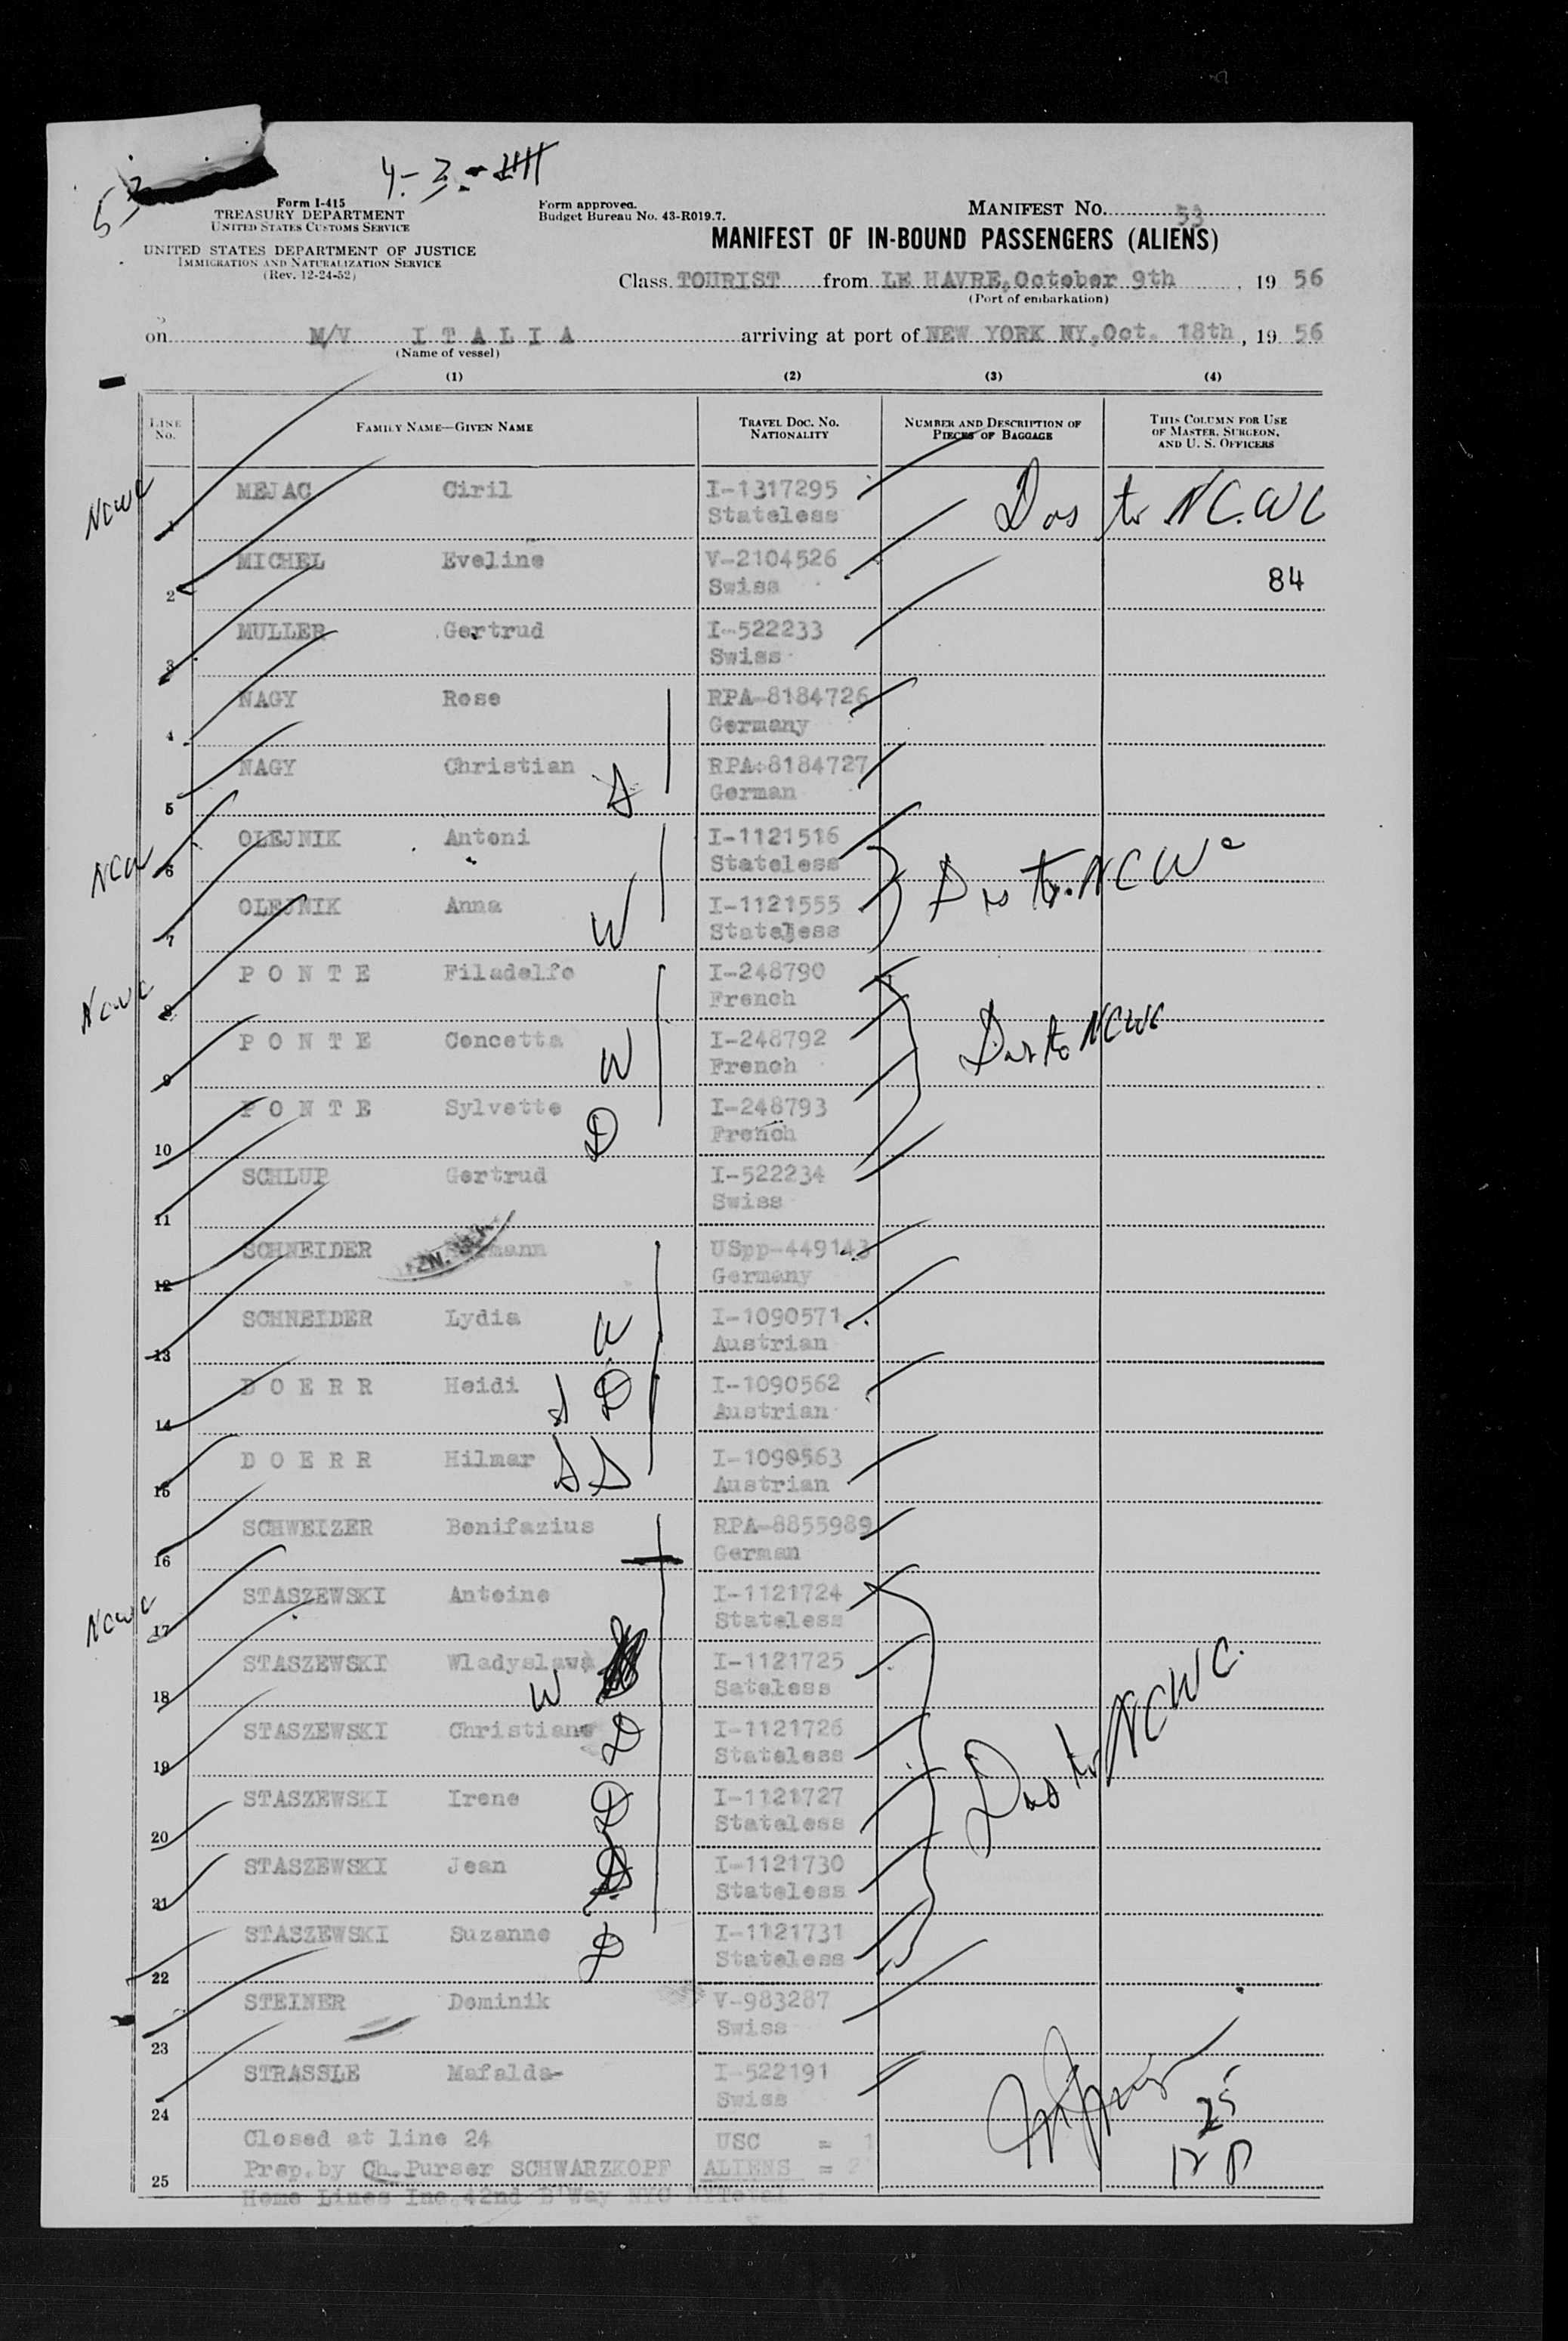 53
4-3-
Form I-415
TREASURY DEPARTMENT
UNITED STATES CUSTOMS SERVICE
UNITED STATES DEPARTMENT OF JUSTICE
IMMIGRATION AND NATURALIZATION SERVICE
(Rev. 12-24-52)
Form approved.
Budget Bureau No. 43-R019.7.
MANIFEST NO. 53
MANIFEST OF IN-BOUND PASSENGERS (ALIENS)
Class TOURIST from LE HAVRE, October 9th, 19 56
(Port of embarkation)
on M/V I T A L I A arriving at port of NEW YORK NY, Oct. 18th, 19 56
(Name of vessel)
(1) (2) (3) (4)
LINE NO. FAMILY NAME—GIVEN NAME TRAVEL DOC. NO. NATIONALITY NUMBER AND DESCRIPTION OF PIECES OF BAGGAGE THIS COLUMN FOR USE OF MASTER, SURGEON, AND U. S. OFFICERS
NCWC
MEJAC Ciril I-1317295
1 Stateless
Dos to NCWC
MICHEL Eveline V-2104526
2 Swiss
84
MULLER Gertrud I-522233
3 Swiss
NAGY Rose RPA-8184726
4 Germany
NAGY Christian RPA-8184727
5 S German
OLEJNIK Antoni I-1121516
NCW 6 Stateless
Dos to NCWC
OLEJNIK Anna I-1121555
7 W Stateless
P O N T E Filadelfo I-248790
NCWC 8 French
P O N T E Concetta I-248792
9 W French
Dos to NCWC
P O N T E Sylvette I-248793
10 D French
SCHLUP Gertrud I-522234
11 Swiss
SCHNEIDER USpp-449143
12 Germany
SCHNEIDER Lydia I-1090571
13 W Austrian
D O E R R Heidi I-1090562
14 S D Austrian
D O E R R Hilmar I-1090563
15 S S Austrian
SCHWEIZER Bonifazius RPA-8855989
16 German
STASZEWSKI Antoine I-1121724
NCWC 17 Stateless
STASZEWSKI Wladyslawa I-1121725
18 W Sateless
STASZEWSKI Christiane I-1121726
19 D Stateless
Dos to NCWC.
STASZEWSKI Irene I-1121727
20 D Stateless
STASZEWSKI Jean I-1121730
21 Stateless
STASZEWSKI Suzanne I-1121731
22 D Stateless
STEINER Dominik V-983287
23 Swiss
STRASSLE Mafalda- I-522191
24 Swiss
25
12 P
Closed at line 24 USC = 1
Prep. by Ch. Purser SCHWARZKOPF ALIENS = 2
25
Home Lines Inc. 42nd B'Way NYC NY Total